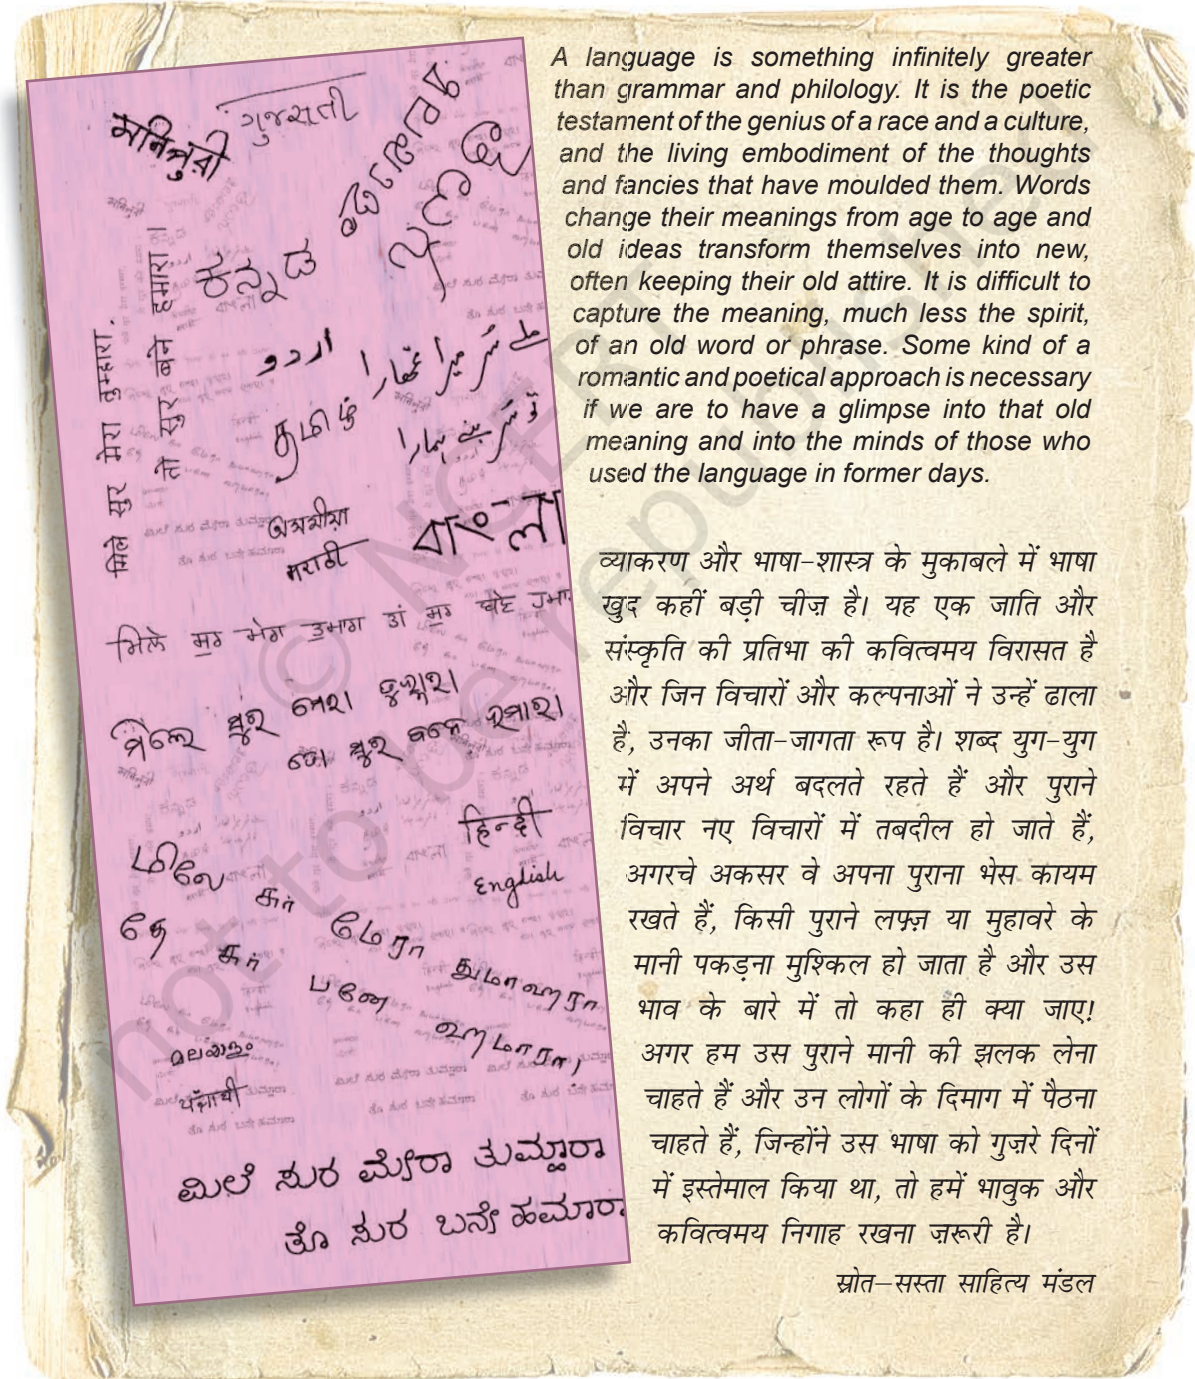 मनिपुरी
ગુજરાતી
ಕನ್ನಡ
मिले सुर मेरा तुम्हारा,
तो सुर बने हमारा।
اردو
ملے سُر میرا تمھارا
تو سُر بنے ہمارا
தமிழ்
অসমীয়া
मराठी
বাংলা
ମିଲେ ସୁର ମେରା ତୁମ୍ହାରା
ତୋ ସୁର ବନେ ହମାରା
हिन्दी
English
மிலே
சுர்
மேரா
துமாஹாரா
தே
சுர்
பனே
ஹமாரா,
മലയാളം
ਪੰਜਾਬੀ
ಮಿಲೆ ಸುರ ಮೇರಾ ತುಮ್ಹಾರಾ
ತೊ ಸುರ ಬನೇ ಹಮಾರಾ
A language is something infinitely greater
than grammar and philology. It is the poetic
testament of the genius of a race and a culture,
and the living embodiment of the thoughts
and fancies that have moulded them. Words
change their meanings from age to age and
old ideas transform themselves into new,
often keeping their old attire. It is difficult to
capture the meaning, much less the spirit,
of an old word or phrase. Some kind of a
romantic and poetical approach is necessary
if we are to have a glimpse into that old
meaning and into the minds of those who
used the language in former days.
व्याकरण और भाषा-शास्त्र के मुकाबले में भाषा
खुद कहीं बड़ी चीज़ है। यह एक जाति और
संस्कृति की प्रतिभा की कवित्वमय विरासत है
और जिन विचारों और कल्पनाओं ने उन्हें ढाला
है, उनका जीता-जागता रूप है। शब्द युग-युग
में अपने अर्थ बदलते रहते हैं और पुराने
विचार नए विचारों में तबदील हो जाते हैं,
अगरचे अकसर वे अपना पुराना भेस कायम
रखते हैं, किसी पुराने लफ़्ज़ या मुहावरे के
मानी पकड़ना मुश्किल हो जाता है और उस
भाव के बारे में तो कहा ही क्या जाए!
अगर हम उस पुराने मानी की झलक लेना
चाहते हैं और उन लोगों के दिमाग में पैठना
चाहते हैं, जिन्होंने उस भाषा को गुज़रे दिनों
में इस्तेमाल किया था, तो हमें भावुक और
कवित्वमय निगाह रखना ज़रूरी है।
स्रोत–सस्ता साहित्य मंडल
© NCERT
not to be republished